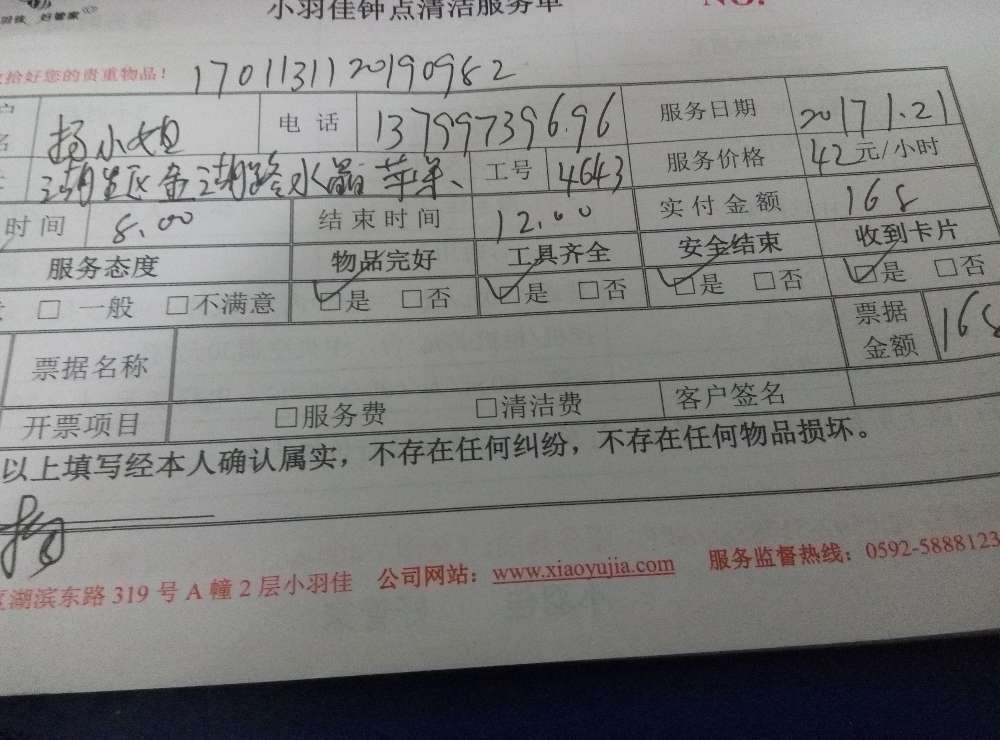 好管家
小羽佳钟点清洁服务单 NO.
拾好您的贵重物品! 1701131120190982
杨小姐 电话 13799739696 服务日期 2017 1.21
湖里区金湖路水晶苹果、 工号 4643 服务价格 42元/小时
时间 8.00 结束时间 12.00 实付金额 168
服务态度 物品完好 工具齐全 安全结束 收到卡片
□ 一般 □不满意 ☑是 □否 ☑是 □否 ☑是 □否 ☑是 □否
票据名称 票据金额 168
开票项目 □服务费 □清洁费 客户签名
以上填写经本人确认属实，不存在任何纠纷，不存在任何物品损坏。
杨
湖滨东路 319 号 A 幢 2 层小羽佳 公司网站：www.xiaoyujia.com 服务监督热线：0592-5888123